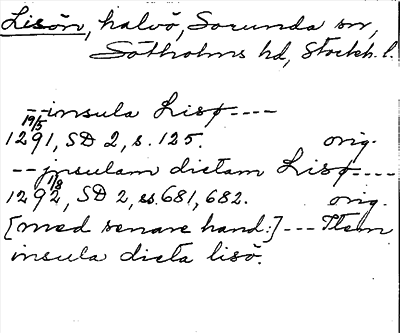 Lisön, halvö, Sorunda sn,
Sotholms hd, Stockh. l.
-- insula Lisø ----
19/5
1291, SD 2, s. 125. orig.
-- jnsulam dictam Lisø ----
1/8
1292, SD 2, ss. 681, 682. orig.
[med senare hand:] --- Item
insula dicta lisö.